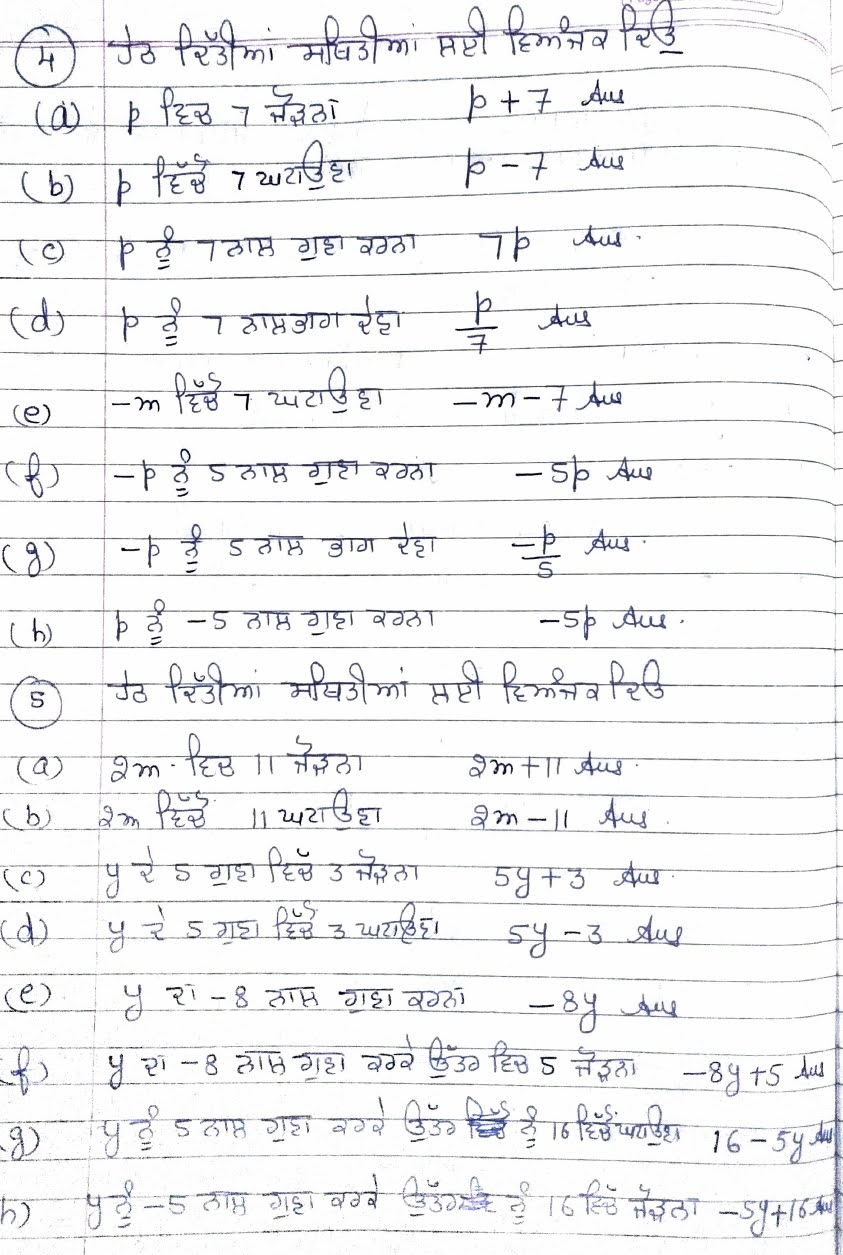 4 ਹੇਠ ਦਿੱਤੀਆਂ ਸਥਿਤੀਆਂ ਲਈ ਵਿਅੰਜਕ ਦਿਓ
(a) p ਵਿਚ 7 ਜੋੜਨਾ p + 7 Ans
(b) p ਵਿੱਚੋਂ 7 ਘਟਾਉਣਾ p - 7 Ans
(c) p ਨੂੰ 7 ਨਾਲ ਗੁਣਾ ਕਰਨਾ 7p Ans.
(d) p ਨੂੰ 7 ਨਾਲ ਭਾਗ ਦੇਣਾ p/7 Ans
(e) -m ਵਿੱਚੋਂ 7 ਘਟਾਉਣਾ -m - 7 Ans
(f) -p ਨੂੰ 5 ਨਾਲ ਗੁਣਾ ਕਰਨਾ -5p Ans
(g) -p ਨੂੰ 5 ਨਾਲ ਭਾਗ ਦੇਣਾ -p/5 Ans.
(h) p ਨੂੰ -5 ਨਾਲ ਗੁਣਾ ਕਰਨਾ -5p Ans.
5 ਹੇਠ ਦਿੱਤੀਆਂ ਸਥਿਤੀਆਂ ਲਈ ਵਿਅੰਜਕ ਦਿਓ
(a) 2m ਵਿਚ 11 ਜੋੜਨਾ 2m + 11 Ans.
(b) 2m ਵਿੱਚੋਂ 11 ਘਟਾਉਣਾ 2m - 11 Ans.
(c) y ਦੇ 5 ਗੁਣਾ ਵਿੱਚ 3 ਜੋੜਨਾ 5y + 3 Ans.
(d) y ਦੇ 5 ਗੁਣਾ ਵਿੱਚੋਂ 3 ਘਟਾਉਣਾ 5y - 3 Ans
(e) y ਦਾ -8 ਨਾਲ ਗੁਣਾ ਕਰਨਾ -8y Ans
(f) y ਦਾ -8 ਨਾਲ ਗੁਣਾ ਕਰਕੇ ਉੱਤਰ ਵਿਚ 5 ਜੋੜਨਾ -8y + 5 Ans
(g) y ਨੂੰ 5 ਨਾਲ ਗੁਣਾ ਕਰਕੇ ਉੱਤਰ ਨੂੰ 16 ਵਿੱਚੋਂ ਘਟਾਉਣਾ 16 - 5y Ans
(h) y ਨੂੰ -5 ਨਾਲ ਗੁਣਾ ਕਰਕੇ ਉੱਤਰ ਨੂੰ 16 ਵਿੱਚ ਜੋੜਨਾ -5y + 16 Ans